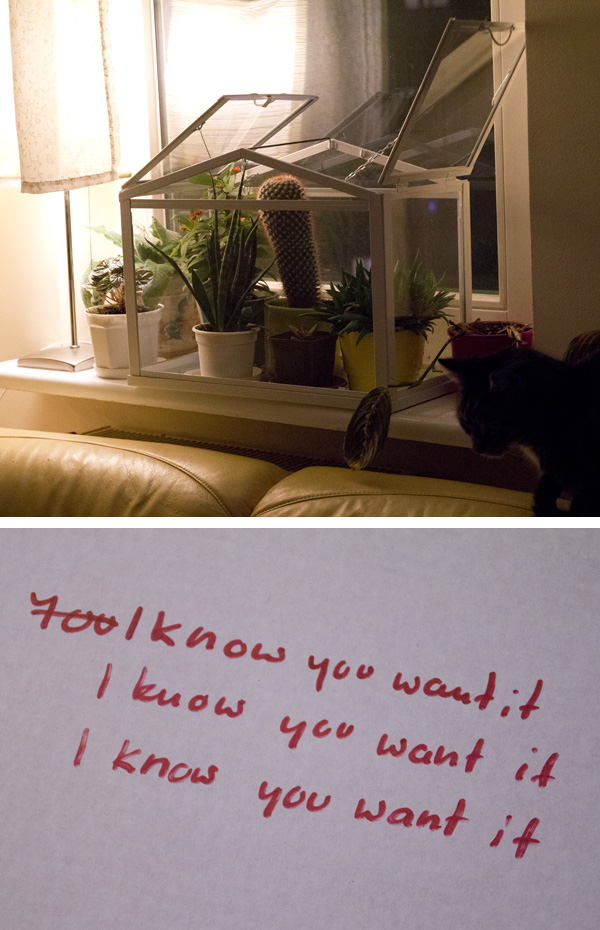 You I know you want it
I know you want it
I know you want it